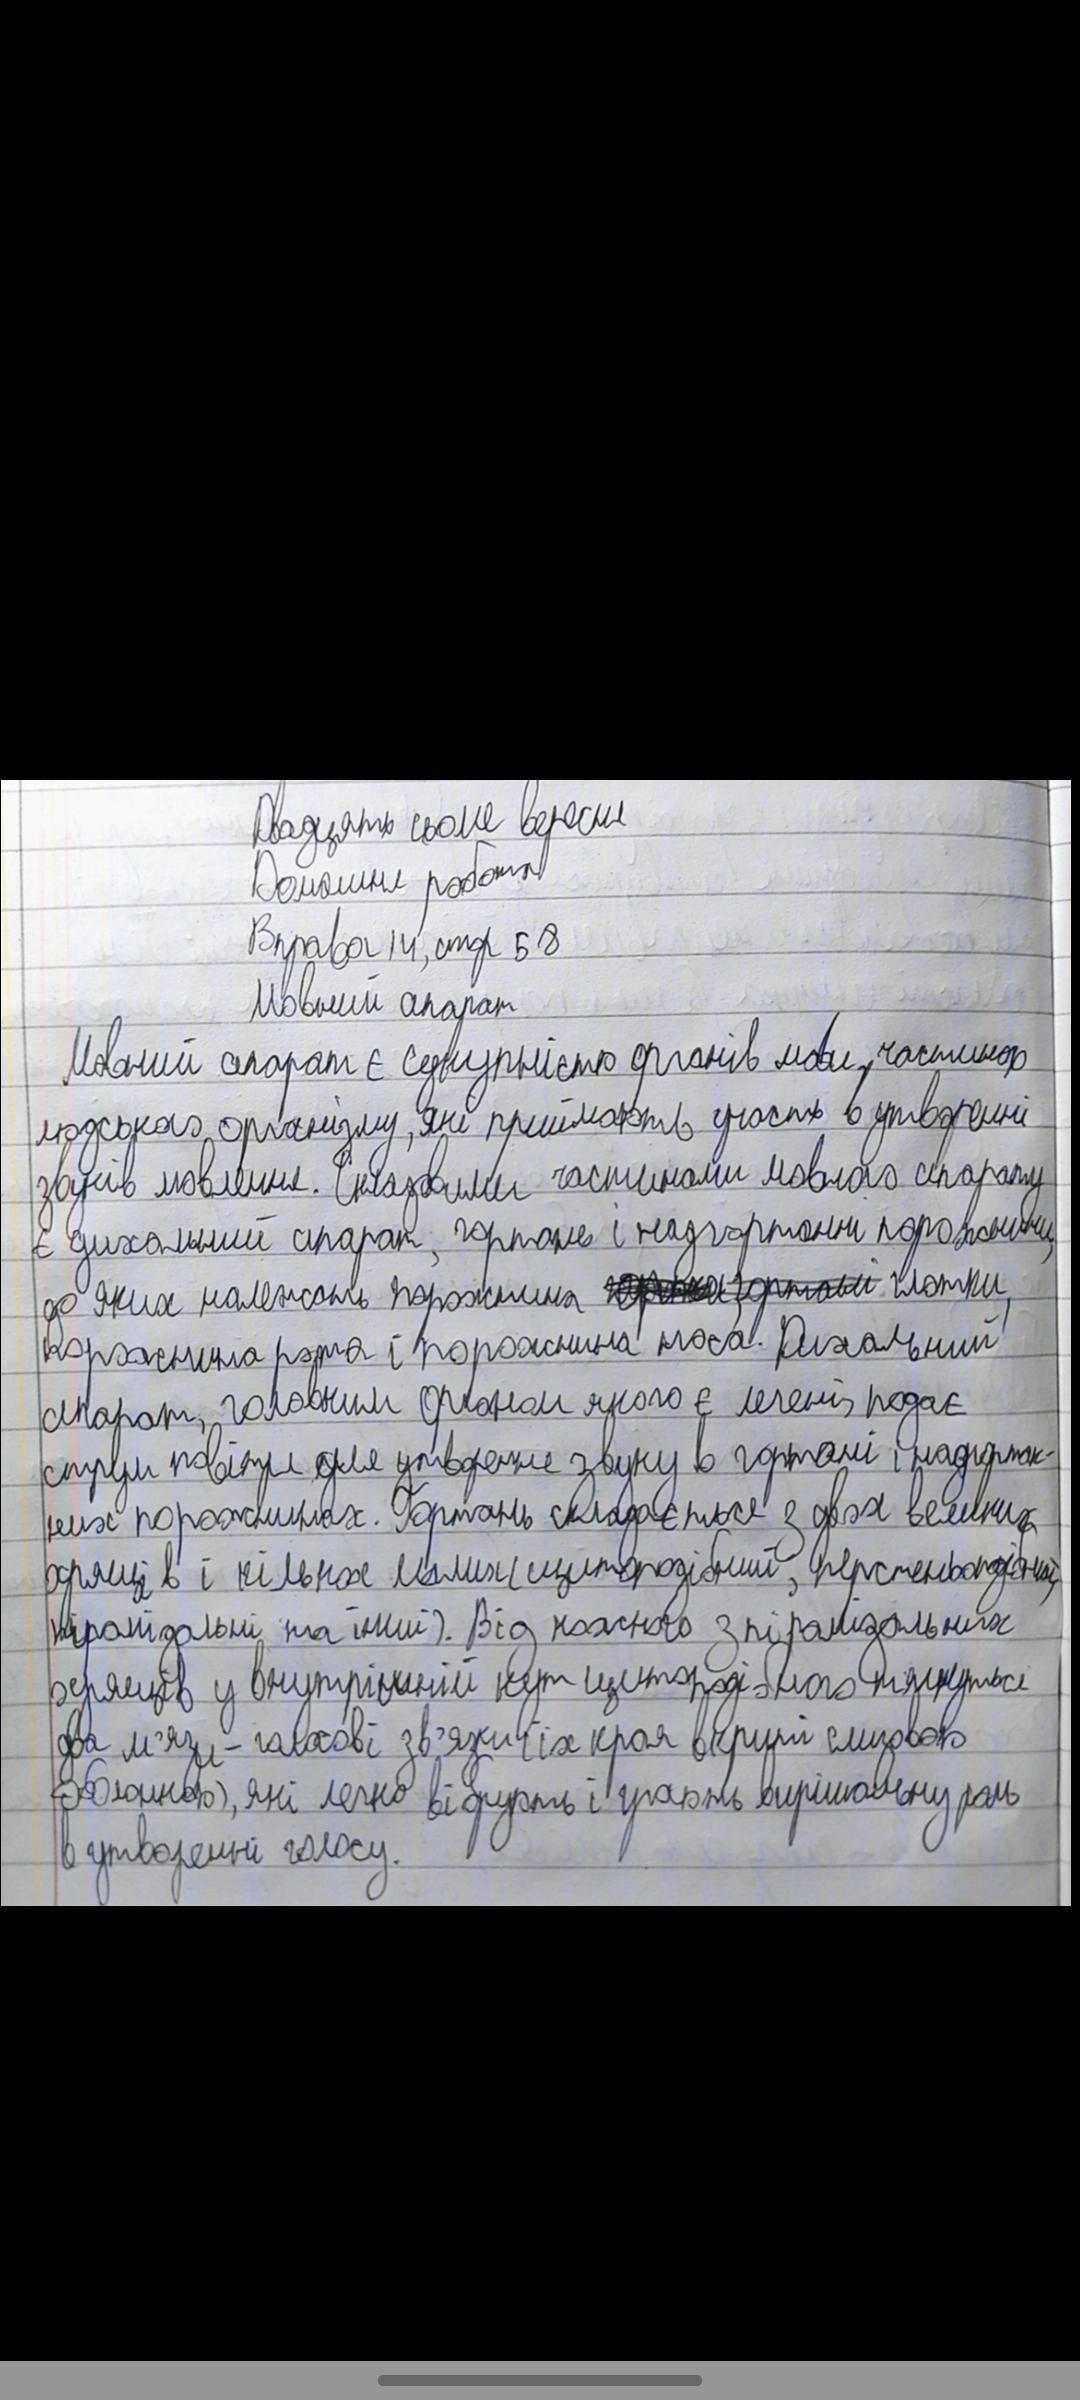 Двадцять сьоме вересня
Домашня робота
Вправа 14, стор 58
Мовний апарат
Мовний апарат є сукупністю органів мови, частиною
людського організму, які приймають участь в утворенні
звуків мовлення. Складовими частинами мовного апарату
є дихальний апарат, гортань і надгортанні порожнини,
до яких належать порожнина глотки,
порожнина рота і порожнина носа. Дихальний
апарат, головним органом якого є легені, подає
струм повітря для утворення звуку в гортані і надгортан-
них порожнинах. Гортань складається з двох великих
хрящів і кількох малих (щитоподібний, перстеньоподібний,
піромідальні та інші). Від кожного з піромідальних
хрящів у внутрішній кут щитоподібного тягнуться
два м'язи - голосові зв'язки (їх края вкриті слизовою
оболонкою), які легко вібрують і грають вирішальну роль
в утворенні голосу.